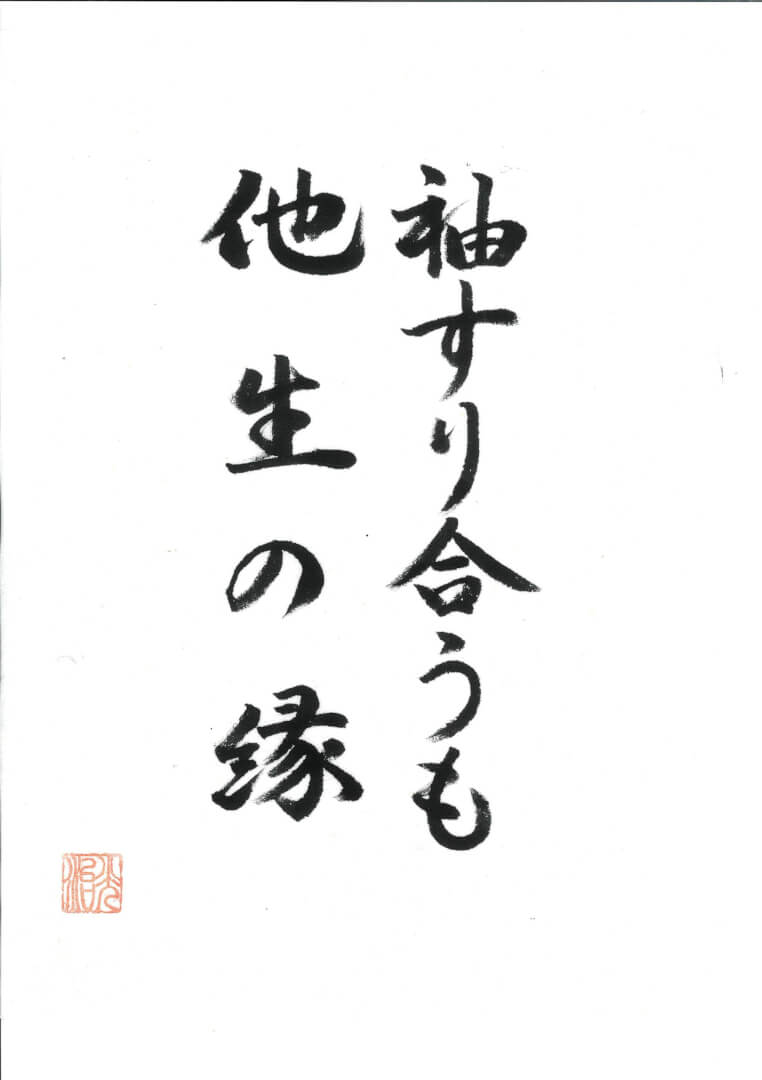 袖すり合うも
他生の縁